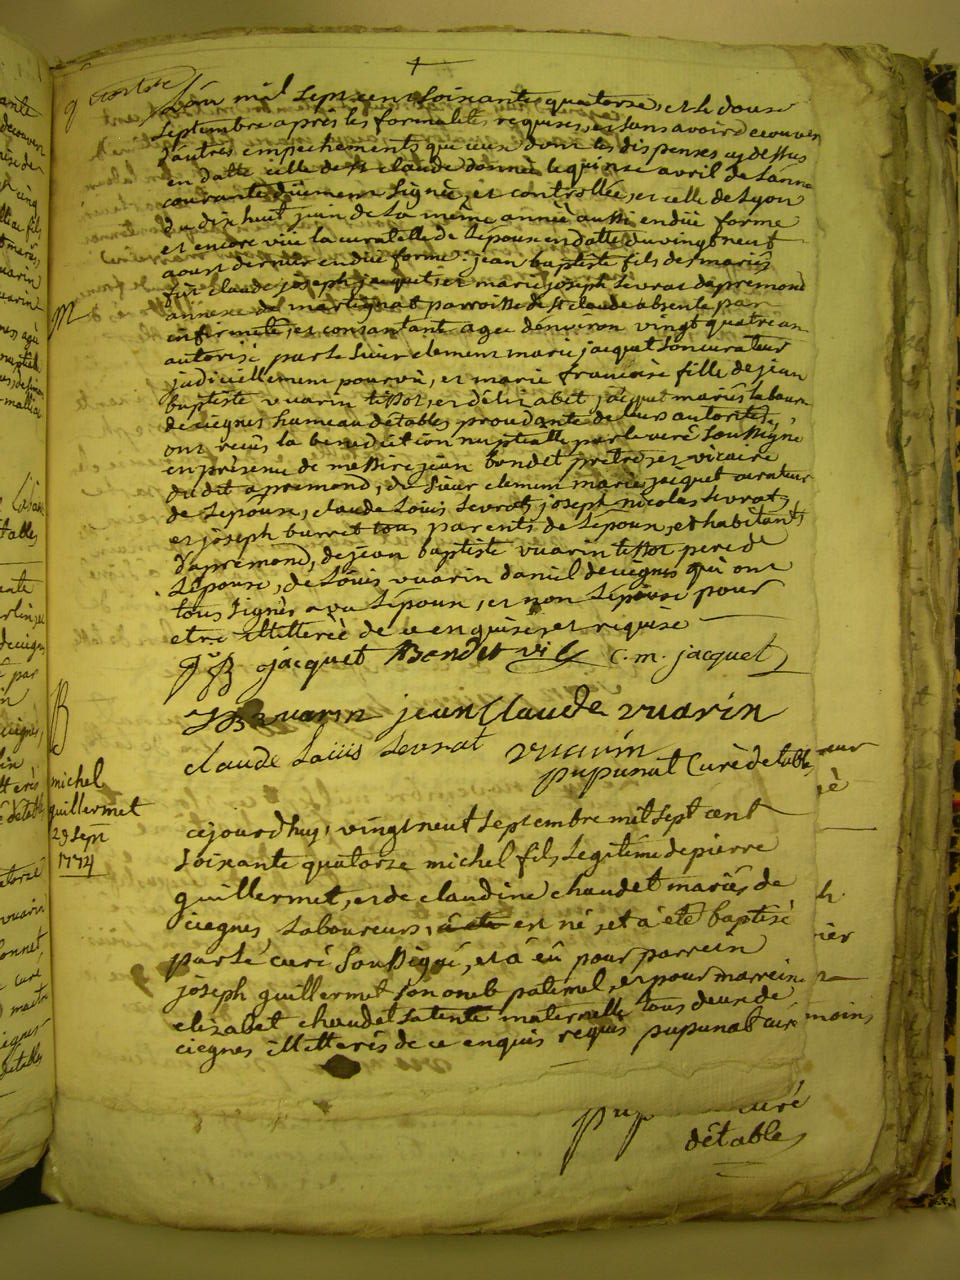 L'an mil sept cent soixante quatorze, et le douse
septembre après les formalités requises, et sans avoir decouvert
d'autres empechements que ceux dont les dispenses cy dessus
en datte celle de st claude donnée le quinze avril de l'année
courante duement signée, et controllée, et celle de Lyon
du dix huit juin de la même année aussi en düe forme
et encore vüe la curatelle de l'epoux en datte du vingt neuf
aoust dernier en düe forme. jean baptiste fils des mariés
feu claude joseph jacquet, et marie joseph levrat d'apremond
annexe de martignat parroisse de st claude absente par
infirmité, et consantante agee d'environ vingt quatre an
autorisé par le sieur clement marie jacquet son curateur
judiciellement pourvû, et marie francoise fille de jean
baptiste vuarin tissot, et d'elizabet jacquet mariés labour
de ciegnes hameau d'étables proudante de leurs autorités,
ont reçus la benediction nuptialle par le curé soussigné
en presence de messire jean bondet prêtre, et vicaire
dudit apremond, de sieur clement marie jacquet curateur
de l'epoux, claude Louis levrat, joseph nicolas levrat,
et joseph burret tous parents de l'epoux, et habitants
d'apremond, de jean baptiste vuarin tissot pere de
l'epouse, de Louis vuarin daniel de ciegnes qui ont
tous signés avec l'epoux, et non l'epouse pour
etre illitterée de ce enquise, et requise
J B jacquet Bondet vic C. m. jacquet
J B vuarin jean Claude vuarin
claude Louis levrat vuarin
pupunat Curé d'etables
M
B
michel
guillermet
29 sept
1774
cejourd'huy, vingt neuf septembre mil sept cent
soixante quatorze michel fils legitime de pierre
guillermet, et de claudine chaudet mariés de
ciegnes laboureurs, est né, et à été baptisé
par le curé soussigné, et à eû pour parrein
joseph guillermet son oncle paternel, et pour marreine
elizabet chaudet sa tente maternelle tous deux de
ciegnes illitterés de ce enquis requis pupunat curé
moins
curé
d'étables